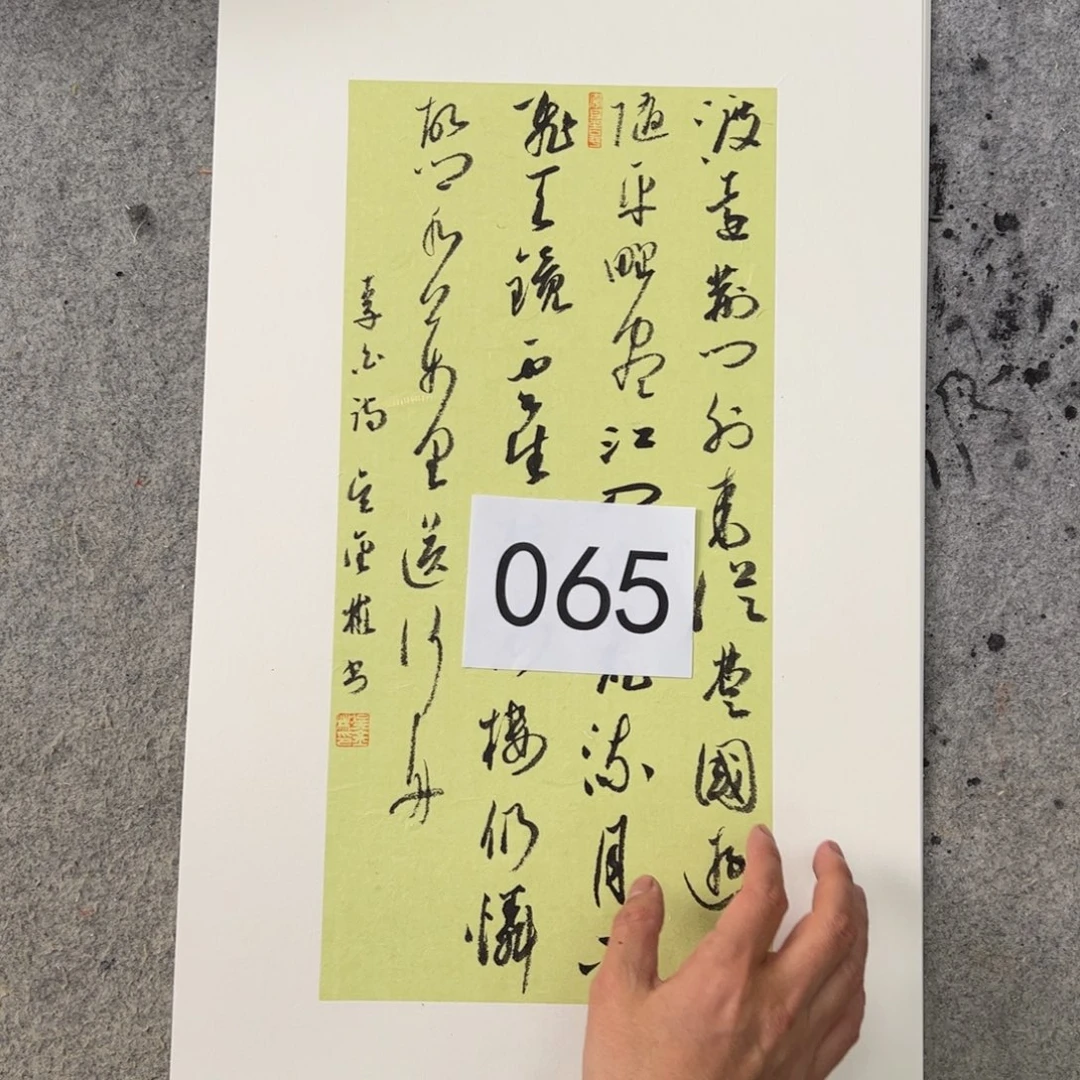 渡遠荊門外來從楚國遊
隨平野盡江流月
飛天鏡雲生樓仍憐
故鄉水萬里送行舟
李白詩 權書
065